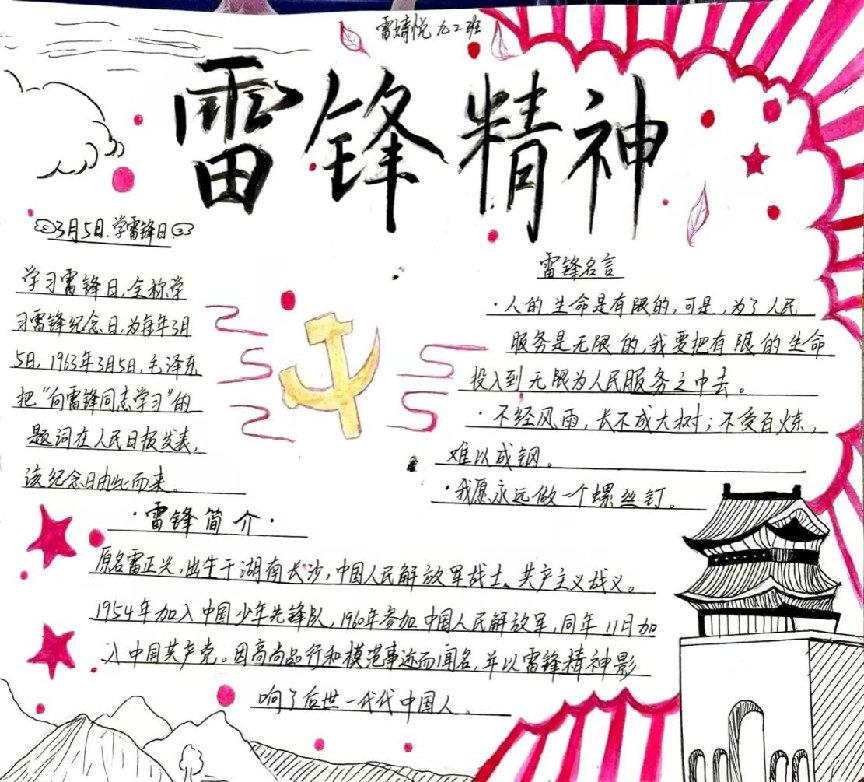 雷婧悦 九2班
雷锋精神
3月5日.学雷锋日
学习雷锋日,全称学
习雷锋纪念日,为每年3月
5日,1963年3月5日,毛泽东
把"向雷锋同志学习"的
题词在人民日报发表,
该纪念日由此而来。
雷锋名言
·人的生命是有限的,可是,为了人民
服务是无限的,我要把有限的生命
投入到无限为人民服务之中去。
·不经风雨,长不成大树;不受百炼,
难以成钢。
·我愿永远做一个螺丝钉。
·雷锋简介·
原名雷正兴,出生于湖南长沙,中国人民解放军战士、共产主义战义。
1954年加入中国少年先锋队,1960年参加中国人民解放军,同年11日加
入中国共产党。因高尚品行和模范事迹而闻名,并以雷锋精神影
响了后世一代代中国人。